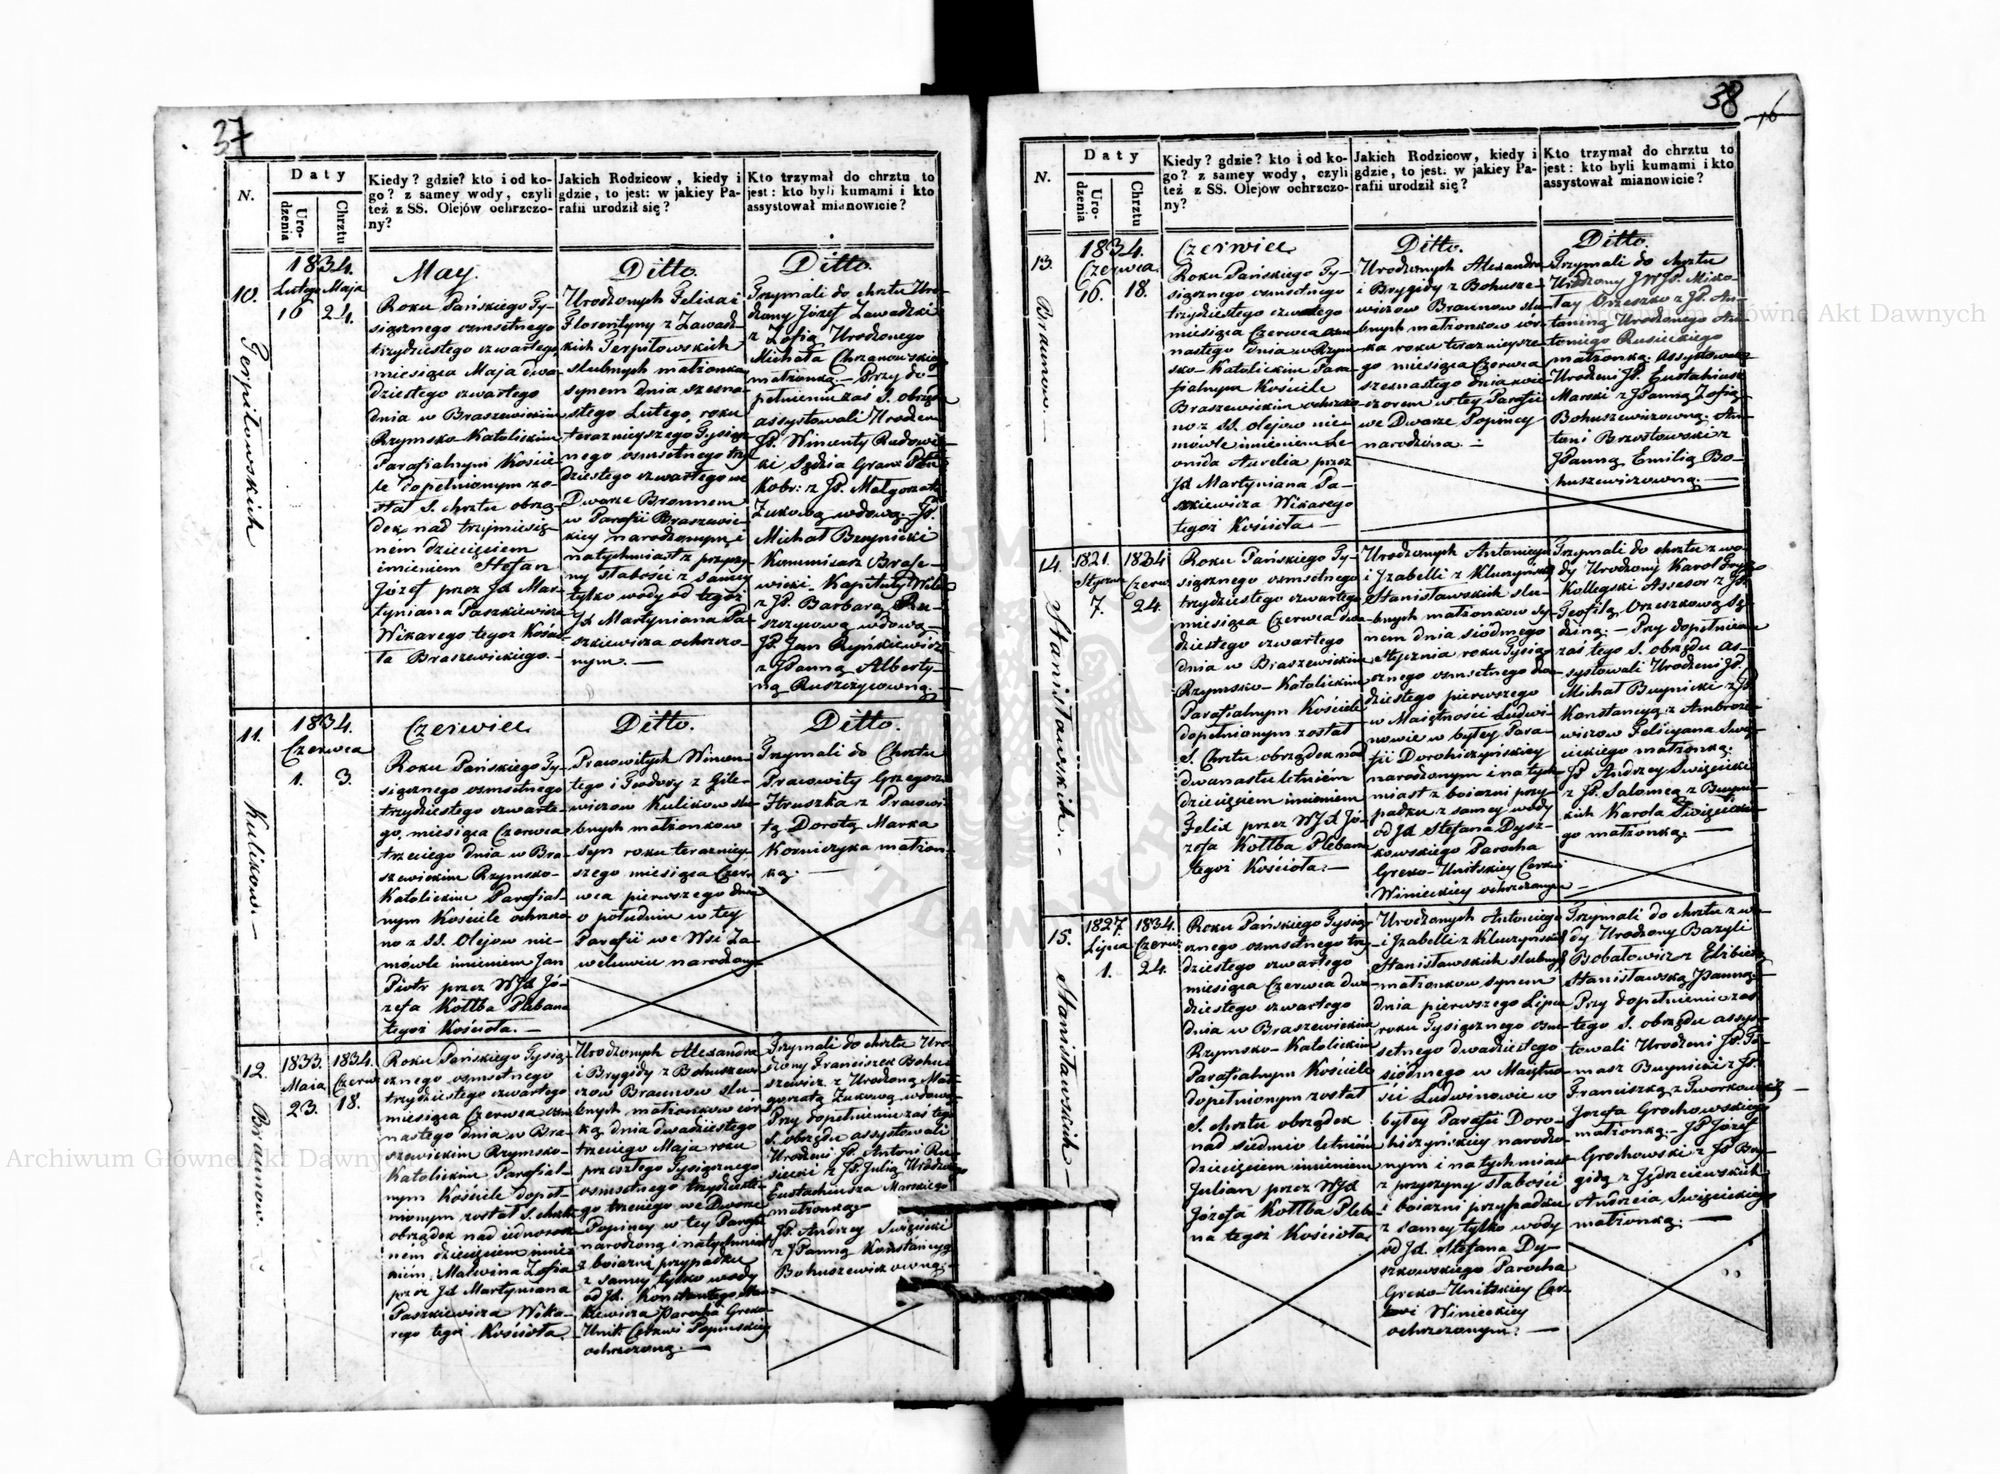 37
N.
Daty
Uro-
dzenia
Chrztu
Kiedy? gdzie? kto i od ko-
go? z samey wody, czyli
też z SS. Olejów ochrzczo-
ny?
Jakich Rodzicow, kiedy i
gdzie, to jest: w jakiey Pa-
rafii urodził się?
Kto trzymał do chrztu to
jest: kto byli kumami i kto
assystował mianowicie?
10.
Terpiłowskich
1834.
Lutego Maja
16 24.
May.
Roku Pańskiego Ty-
siącznego osmsetnego
trzydziestego czwartego
miesiąca Maja dwa-
dziestego czwartego
dnia w Braszewickim
Rzymsko Katolickim
Parafialnym Koście-
le dopełnionym zo-
stał S. chrztu obrzą-
dek nad trzymiesię-
nem dziecięciem
imieniem Stefan
Józef przez Jd Mar-
tyniana Paszkiewicza
Wikarego tegoż Kościo-
ła Braszewickiego.-
Ditto.
Urodzonych Felixa i
Florentyny z Zawadz-
kich Terpiłowskich
slubnych małżonkow
synem dnia szesna-
stego Lutego, roku
teraznieyszego Tysiącz-
nego osmsetnego trzy-
dziestego czwartego we
Dworze Bronnem
w Parafii Braszewic-
kiey narodzonym i
natychmiast z przyczy-
ny słabości z samey
tylko wody od tegoż
Jd Martyniana Pa-
szkiewicza ochrzczo-
nym.—
Ditto.
Trzymali do chrztu Uro-
dzony Józef Zawadzki
z Zofią Urodzonego
Michała Chrzanowskiego
małżonką.— Przy do-
pełnieniu zaś S. obrządku
assystowali Urodzeni
JP. Wincenty Rudowic-
ki Sędzia Gran: Ptu
Kobr: z JP. Małgorzatą
Zukową wdową. JP.
Michał Buynicki
Kommisarz Brasze-
wicki Kapituły Wileń
z JP. Barbarą Ru-
szczycową wdową—
JP. Jan Ryńkiewicz
z JPanną Alberty-
ną Ruszczycowną.—
11.
Kulikow.—
1834.
Czerwca
1. 3.
Czerwiec
Roku Pańskiego Ty-
siącznego osmsetnego
trzydziestego czwarte-
go, miesiąca Czerwca
trzeciego dnia w Bra-
szewickim Rzymsko-
Katolickim Parafial-
nym Kosciele ochrzczo-
no z SS. Olejow nie-
mówle imieniem Jan
Piotr przez WJd Jó-
zefa Kottba Plebana
tegoż Kościoła.—
Ditto.
Pracowitych Wincen-
tego i Teodory z Gile-
wiczow Kulikow slu-
bnych małżonkow
syn roku terazniey-
szego miesiąca Czer-
wca pierwszego dnia
o południu w tey
Parafii we Wsi Za-
welewiu narodzony
Ditto.
Trzymali do Chrztu
Pracowity Grzegorz
Hruszka z Pracowi-
tą Dorotą Marka
Korniczyka małżon-
ką. —
12.
Braunow.
1833. 1834.
Maia Czerw.
23. 18.
Roku Pańskiego Tysią-
cznego osmsetnego
trzydziestego czwartego
miesiąca Czerwca osm-
nastego dnia w Bra-
szewickim Rzymsko-
Katolickim Parafial-
nym Kościele dopeł-
nionym został S. chrztu
obrządek nad iednorocz-
nem dziecięciem imie-
niem, Malwina Zofia
przez Jd Martyniana
Paszkiewicza Wika-
rego tegoż Kościoła.
Urodzonych Alexandra
i Brygidy z Bohuszewi-
czow Braunow slu-
bnych małżonkow cór-
ką dnia dwadziestego
trzeciego Maja roku
przeszłego Tysiącznego
osmsetnego trzydzieste-
go trzeciego we Dworze
Popincy w tey Parafii
narodzoną i natychmiast
z boiazni przypadku
z samey tylko wody
od Jd. Konstantego
Parocha Greko-
Unit. Cerkwi Popinskiey
ochrzczoną.—
Trzymali do chrztu Uro-
dzony Franciszek Bohu-
szewicz z Urodzoną Mał-
gorzatą Zukową wdową.
Przy dopełnieniu zaś tego
S. obrządku assystowali
Urodzeni JP. Antoni Ru-
siecki z JP. Julią Urodzonego
Eustachiusza Marskiego
małżonką.
JP. Andrzey Swięcicki
z JPanną Konstancyą
Bohuszewiczowną.—
38
16
N.
Daty
Uro-
dzenia
Chrztu
Kiedy? gdzie? kto i od ko-
go? z samey wody, czyli
też z SS. Olejów ochrzczo-
ny?
Jakich Rodzicow, kiedy i
gdzie, to jest: w jakiey Pa-
rafii urodził się?
Kto trzymał do chrztu to
jest: kto byli kumami i kto
assystował mianowicie?
13.
Braunow.
1834.
Czerwca
16. 18.
Czerwiec
Roku Pańskiego Ty-
siącznego osmsetnego
trzydziestego czwatego
miesiąca Czerwca osm-
nastego dnia w Rzym-
sko-Katolickim Para-
fialnym Kościele
Braszewickim ochrzczo-
no z SS. olejow nie-
mówle imieniem Le-
onida Aurelia przez
Jd Martyniana Pa-
szkiewicza Wikarego
tegoż Kościoła—
Ditto.
Urodzonych Alexandra
i Brygidy z Bohusze-
wiczow Braunow slu-
bnych małżonkow cór-
ka roku teraznieysze-
go miesiąca Czerwca
szesnastego dnia wie-
czorem w tey Parafii
we Dworze Popincy
narodzona.—
Ditto.
Trzymali do chrztu
Urodzony JWJP. Miko-
łay Orzeszko z JP. An-
toniną Urodzonego An-
toniego Rusieckiego
małżonką. Assystowali
Urodzeni JP. Eustahiusz
Marski z JPanną Zofią
Bohuszewiczowną. An-
toni Brzostowski z
JPanną Emilią Bo-
huszewiczowną.—
14.
Stanisławskich.—
1821. 1834
Styczn. Czerw.
7. 24.
Roku Pańskiego Ty-
siącznego osmsetnego
trzydziestego czwartego
miesiąca Czerwca dwa-
dziestego czwartego
dnia w Braszewickim
Rzymsko-Katolickim
Parafialnym Kościele
dopełnionym został
S. Chrztu obrządek nad
dwanastu letniém
dziecięciem imieniem
Felix przez WJd Jó-
zefa Kottba Plebana
tegoż Kościoła.—
Urodzonych Antoniego
i Izabelli z Kluczyńskich
Stanisławskich slu-
bnych małżonkow sy-
nem dnia siódmego
stycznia roku Tysią-
cznego osmsetnego dwa-
dziestego pierwszego
w Maiętności Ludwi-
nowie w byłey Para-
fii Dorohiczyńskiey
narodzonym i natych-
miast z boiazni przy-
padku z samey wody
od Jd Stefana Dysz-
kowskiego Parocha
Greko-Unitskiey Cerkwi
Winieckiey ochrzczonym—
Trzymali do chrztu z wo-
dy Urodzony Karol
Kollegski Assesor z JP.
Teofilą Orzeszkową Sę-
dziną.— Przy dopełnieniu
zaś tego S. obrządku as-
systowali Urodzeni JP.
Michał Buynicki z JP.
Konstancyą z Ambroże-
wiczow Felicyana Swię-
cickiego małżonką.
JP Andrzey Swięcicki
z JP. Salomeą z Buynic-
kich Karola Swięcickie-
go małżonką.—
15.
Stanisławskich
1827. 1834.
Lipca Czerw.
1. 24.
Roku Pańskiego Tysią-
cznego osmsetnego trzy-
dziestego czwartego
miesiąca Czerwca dwa-
dziestego czwartego
dnia w Braszewickim
Rzymsko-Katolickim
Parafialnym Kościele
dopełnionym został
S. chrztu obrządek
nad siedmio letniém
dziecięciem imieniem
Julian przez WJd
Józefa Kottba Pleba-
na tegoż Kościoła.
Urodzonych Antoniego
i Izabelli z Kluczyńskich
Stanisławskich slubnych
małżonkow synem
dnia pierwszego Lipca
roku Tysiącznego osm-
setnego dwadziestego
siódmego w Maiętno-
ści Ludwinowie w
byłey Parafii Doro-
hiczyńskiey narodzo-
nym i natychmiast
z przyczyny słabości
i boiazni przypadku
z samey tylko wody
od Jd. Stefana Dy-
szkowskiego Parocha
Greko-Unitskiey Cer-
kwi Winieckiey
ochrzczonym.—
Trzymali do chrztu z wo-
dy Urodzony Bazyli
Bobatowicz z Elżbietą
Stanisławską JPanną.
Przy dopełnieniu zaś
tego S. obrządku assys-
towali Urodzeni JP. To-
masz Buynicki z JP.
Franciszką z Tworkowskich
Jozefa Grochowskiego
małżonką.— JP Józef
Grochowski z JP Bry-
gidą z Jędrzeiewskich
Andrzeia Swięcickiego
małżonką.—
Archiwum Główne Akt Dawnych
Archiwum Główne Akt Dawnych